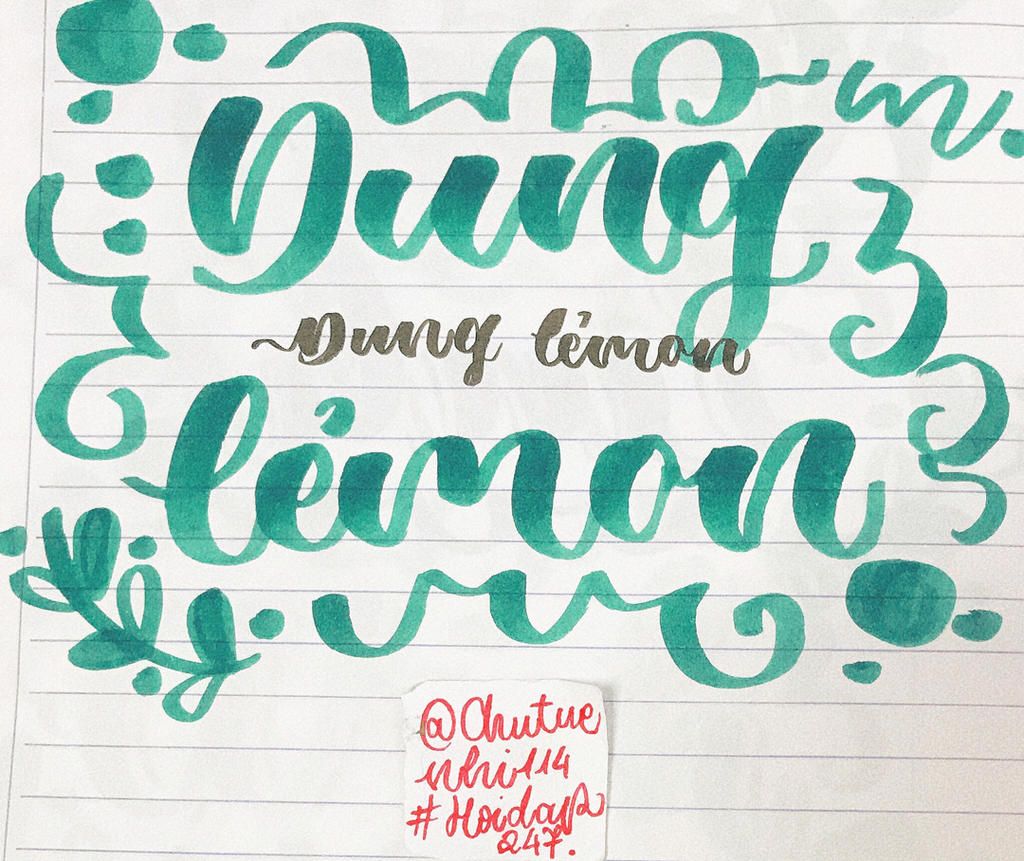 Dung
Dung lémon
lémon
@Chutue
nhi114
#Hoidap
247.